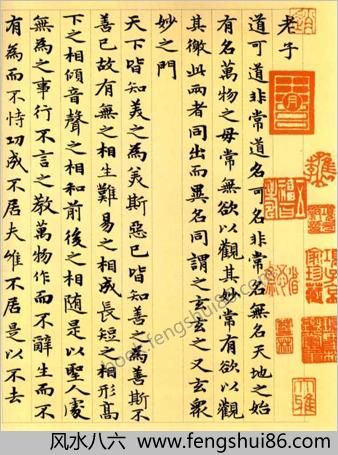 老子
道可道非常道名可名非常名無名天地之始
有名萬物之母常無欲以觀其妙常有欲以觀
其徼此兩者同出而異名同謂之玄玄之又玄衆
妙之門
天下皆知美之為美斯惡已皆知善之為善斯不
善已故有無之相生難易之相成長短之相形高
下之相傾音聲之相和前後之相隨是以聖人處
無為之事行不言之教萬物作而不辭生而不
有為而不恃功成不居夫惟不居是以不去
項子京家珍藏
www.fengshui86.com
风水八六 www.fengshui86.com